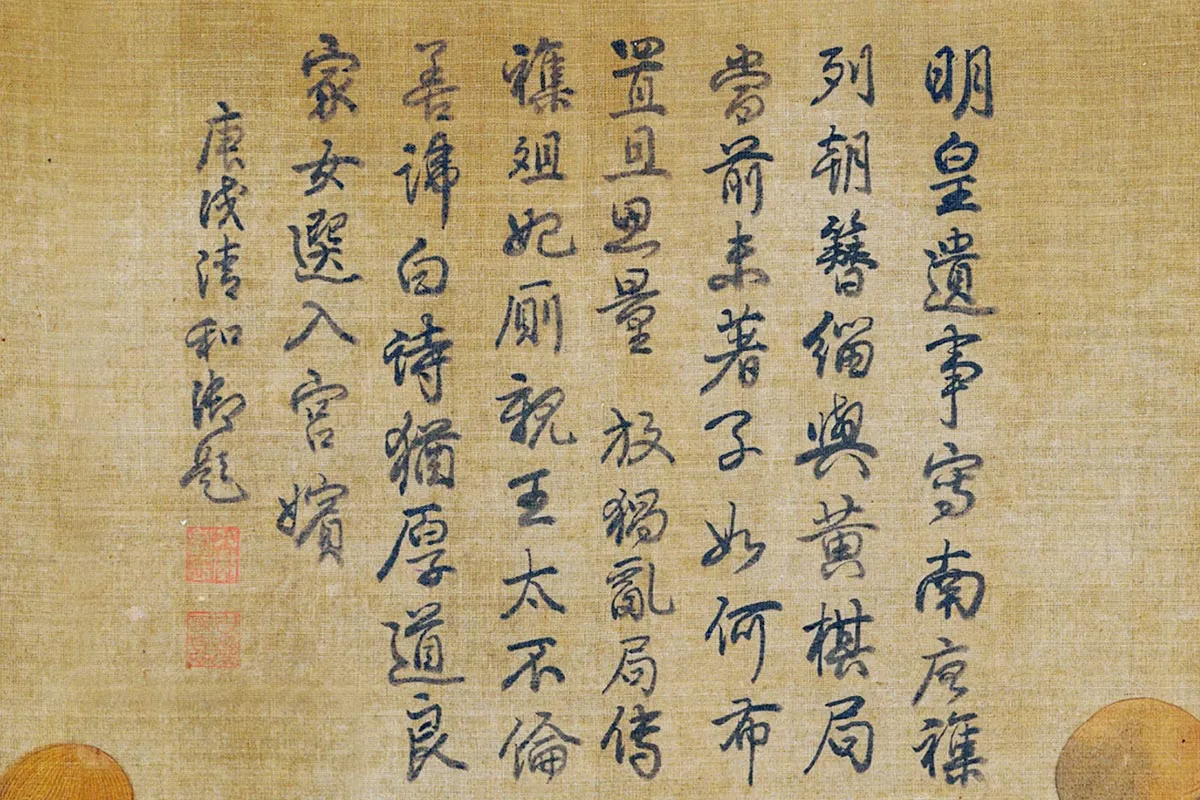 明皇遺事寫南唐襍
列朝簪緇與黃棋局
當前未著子如何布
置且思量 放猧亂局傳
襍俎妃廁親王太不倫
善諱白詩猶厚道良
家女選入宮嬪
庚戌清和御題